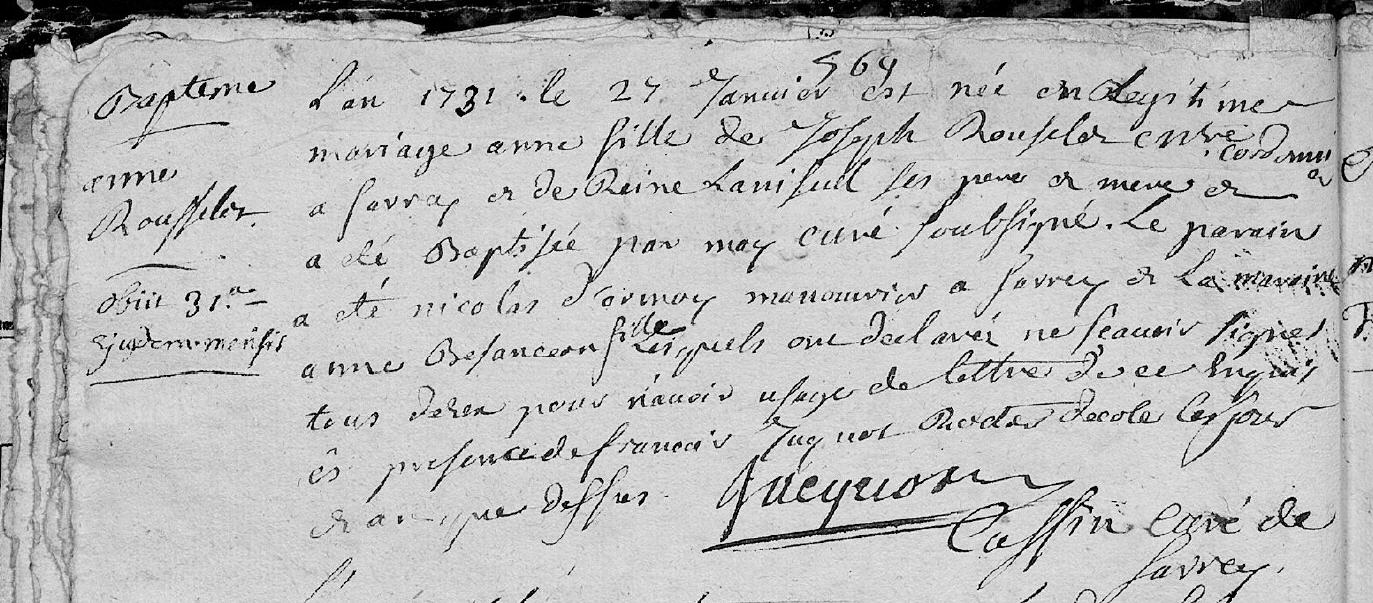 569
Bapteme
anne
Rousselot
obiit 31.a
Ejusdem mensis
L'an 1731. le 27 Janvier est née en Legitime
mariage anne fille de Joseph Rousselot
cordonnier
a Sarrey et de Reine ses pere et mere et
a eté Baptisée par moy curé soubsigné. Le parain
a eté nicolas d'ormoy manouvrier a Sarrey et La maraine
anne Besancon fille Lesquels ont declarez ne scavoir signer
tous deux pour n'avoir usage de lettre de ce Enquis
es presence de francois Jaquot Recteur d'ecole Les jour
et an que dessus. Jacquot
Cassin Curé de
Sarrey.